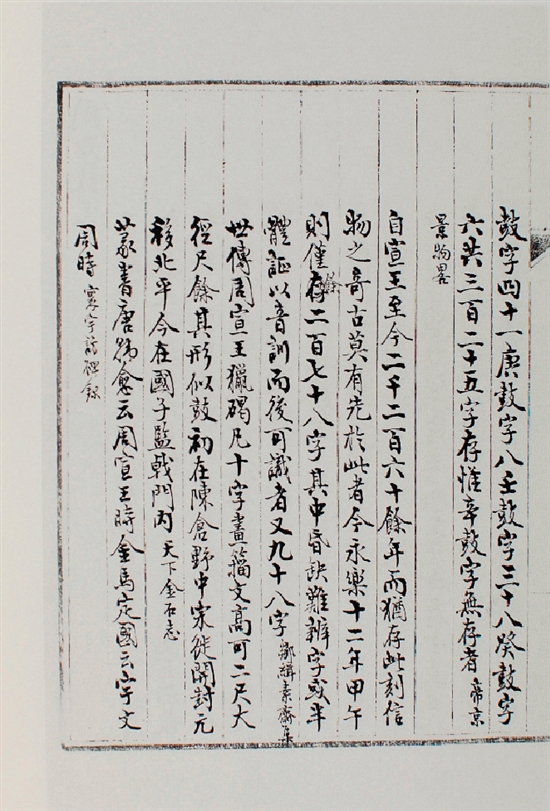 鼓字四十一庚鼓字八壬鼓字三十八癸鼓字
六共三百二十五字存惟辛鼓字無存者帝京
景物畧
自宣王至今二千二百六十餘年而猶存此刻信
物之奇古莫有先於此者今永樂十二年甲午
則僅存餘二百七十八字其中昏缺難辨字或半
體謳以音訓而後可識者又九十八字鄒緝素齋集
世傳周宣王獵碣凡十字畫籀文高可二尺大
徑尺餘其形似鼓初在陳倉野中宋徙開封元
移北平今在國子監戟門內天下金石志
篆書唐韓愈云周宣王時金馬定國云宇文
周時寰宇訪碑錄